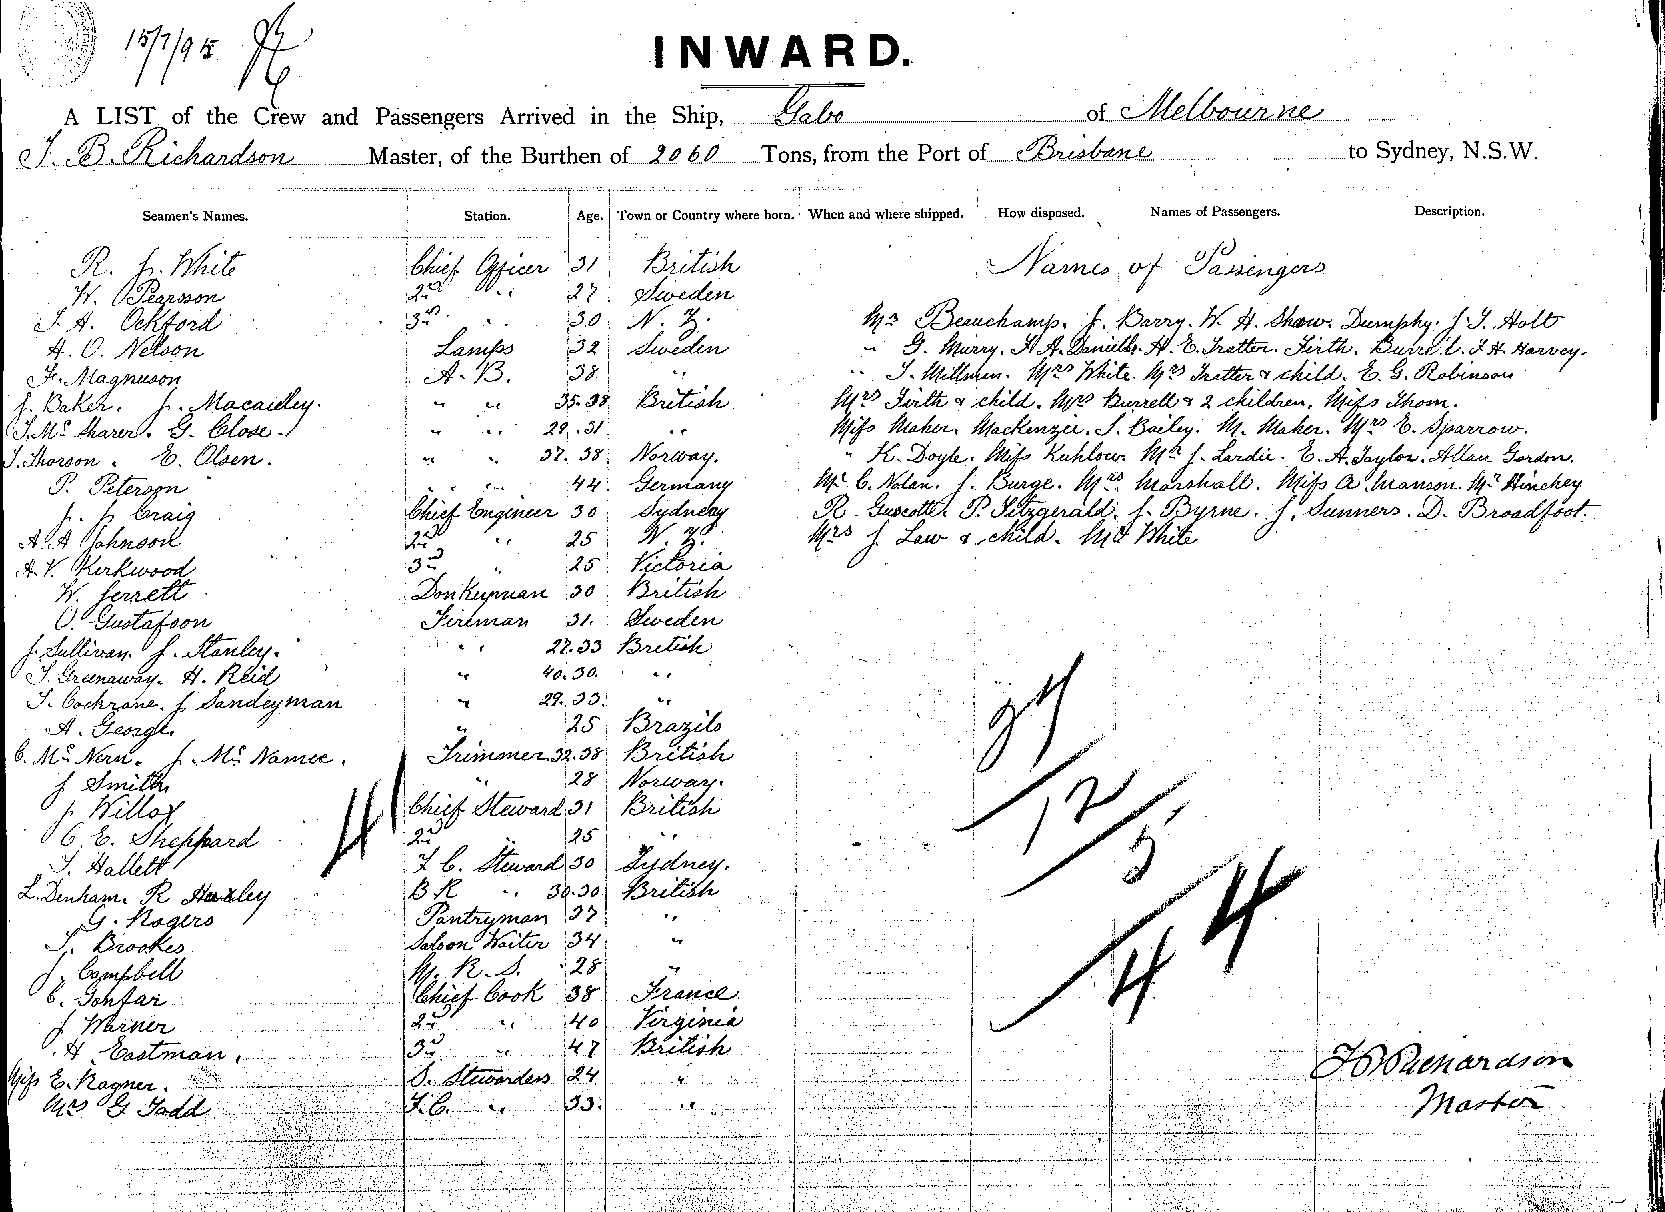 15/7/95
INWARD.
A LIST of the Crew and Passengers Arrived in the Ship, Gabo of Melbourne
T. B. Richardson Master, of the Burthen of 2060 Tons, from the Port of Brisbane to Sydney, N.S.W.
Seamen's Names. Station. Age. Town or Country where born. When and where shipped. How disposed. Names of Passengers. Description.
R. J. White Chief Officer 31 British Names of Passengers
W. Pearsson 2nd " 27 Sweden
T. A. Ockford 3rd " 30 N. Z. Mr Beauchamp. J. Barry. W. H. Shaw. Dumphy. J. T. Holt
A. O. Nelson Lamps 32 Sweden " G. Murry. H. A. Daniells. A. E. Tratter. Firth. Burrell. T. H. Harvey.
F. Magnuson A. B. 38 " " T. Millman. Mrs White. Mrs Tratter & child. E. G. Robinson
J. Baker. J. Macauley. " " 35.38 British Mrs Firth & child. Mrs Burrell & 2 children. Miss Thom.
T. Mc Sharer. G. Close. " " 29.31 " Miss Maher. Mackenzie. T. Bailey. M. Maher. Mrs E. Sparrow.
T. Thorson. E. Olsen. " " 37.38 Norway. " K. Doyle. Miss Kuhlow. Mr J. Lardie. E. A. Taylor. Allan Gordon.
P. Peterson " " 44 Germany Mr C. Nolan. J. Burge. Mrs Marshall. Miss A Manson. Mr Hinchey
J. J. Craig Chief Engineer 30 Sydney R. Guscotte. P. Fitzgerald. J. Byrne. J. Sunners. D. Broadfoot.
A. A Johnson 2nd " 25 N. Z. Mrs J Law & child. Mr White
A. V. Kerkwood 3rd " 25 Victoria
W. Jerrett Donkeyman 30 British
O. Gustafson Fireman 31. Sweden
J. Sullivan. J. Stanley. " 27.33 British
T. Greenaway. H. Reid " 40.30. "
T. Cochrane. J. Sandeyman " 29.33. "
A. George. " 25 Brazils
C. Mc Nern. J. Mc Namee. Trimmer 32.38 British
J Smith " 28 Norway.
J Willox Chief Steward 31 British
C. E. Sheppard 2nd " 25 "
T. Hallett F C. Steward 30 Sydney.
L. Denham. R Haxley B R " 30.30 British
G. Rogers Pantryman 27 "
T. Brookes Saloon Waiter 34 "
J. Campbell M. R. S. 28 "
C. Gontar Chief Cook 38 France
J Warner 2nd " 40 Virginia
H Eastman. 3rd " 47 British
Miss E. Ragner. S. Stewardess 24 "
Mrs G Todd F.C. " 33. "
41
27
12
5
4
4
T B Richardson
Master